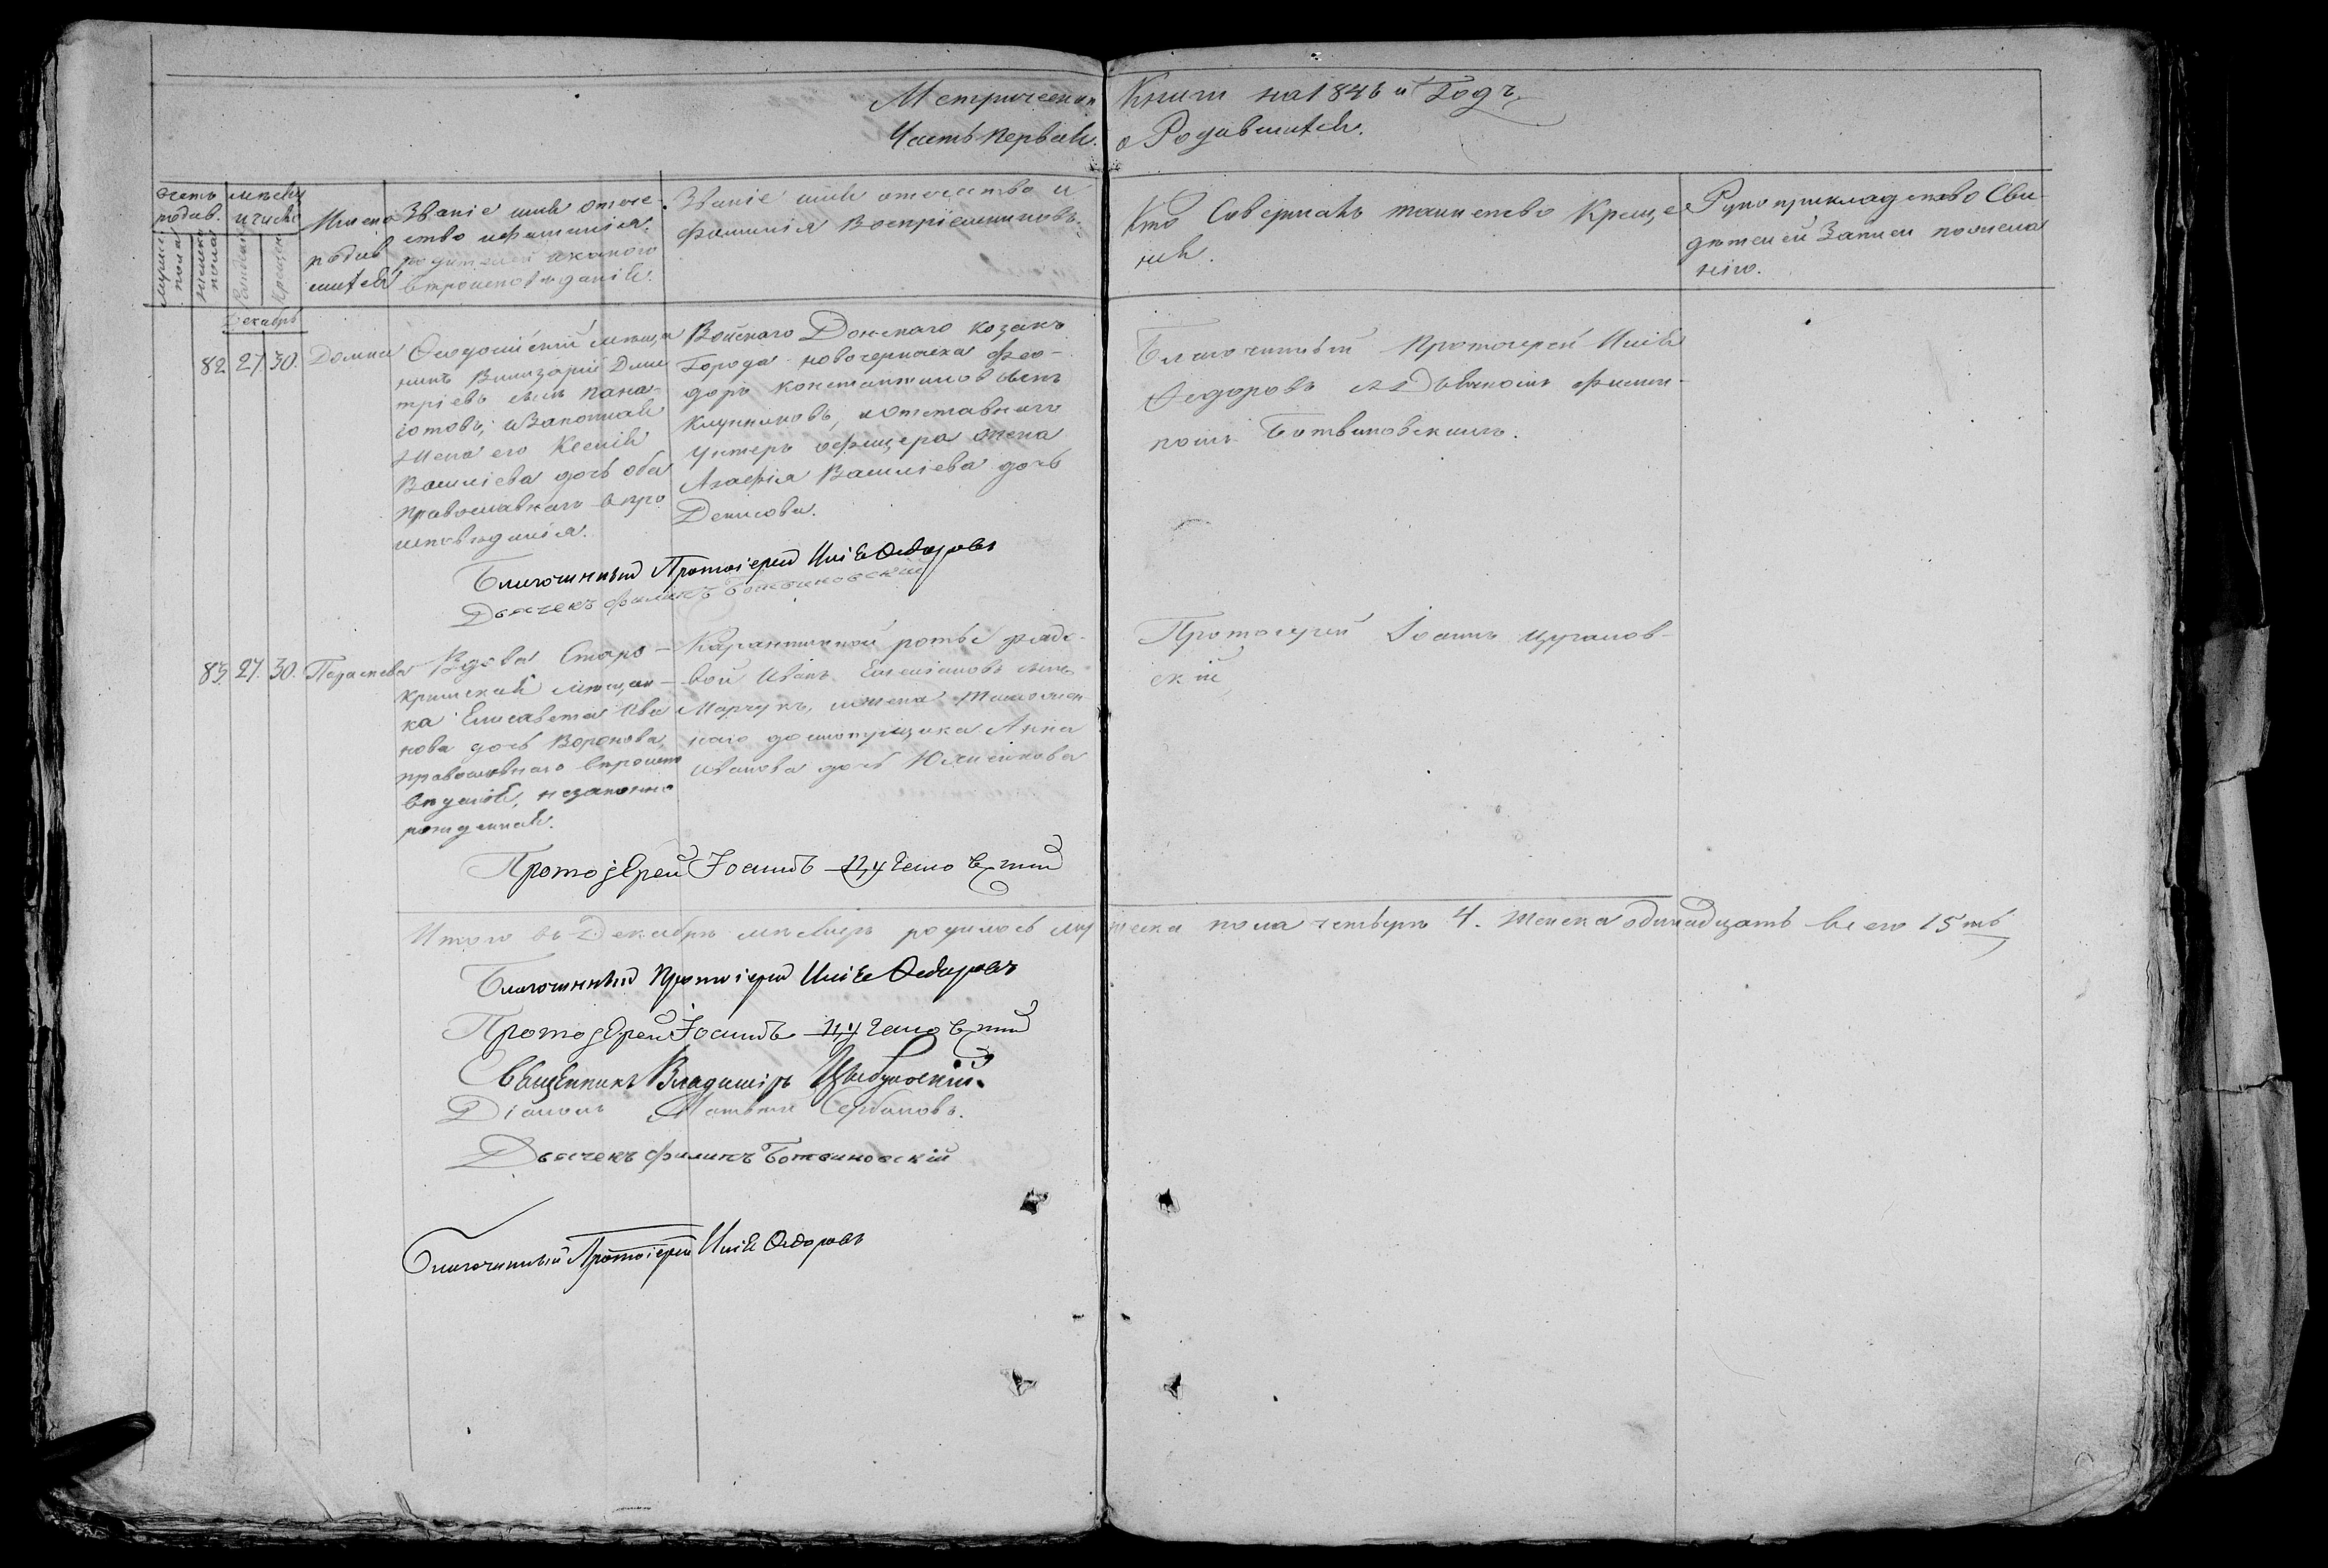 Метрической Книги на 1846 й Годъ,
Часть первая. о Родившихся.
Счетъ родив.
мужес. пола
женска пола
месяцъ и число
Рожденія
Крещенія
Имена родив
шихся
Званіе имя отече-
ство и фамилія
родителей и какого
вероисповеданія.
Званіе имя отечество и
фамилія Воспріемниковъ.
Кто Совершалъ таинство Креще
нія.
Рукоприкладство Сви-
детелей Записи по жела
нію.
Декабрь
82. 27. 30. Домна
Феодосійскій меща
нинъ Дми
тріевъ сынъ Пана-
іотовъ, и Законная
жена его Ксенія
Василіева дочь оба
православнаго веро
исповеданія.
Войскаго Донскаго козакъ
Города новочеркаска Фео-
доръ Константиновъ сынъ
и отставнаго
унтеръ офицера жена
Агафія Василіева дочь
Денисова.
Благочинный Протоіерей Илія
Федоровъ съ Дьячкомъ Филип-
помъ Ботвиновскимъ.
Благочинный Протоіерей Илія Федоровъ
Дьячекъ Филипъ Ботвиновскій
83. 27. 30. Параскева
Вдова Старо-
крымская мещан-
ка Елисавета Ива
нова дочь Воронова,
православнаго вероиспо
веданія, незаконно
рожденная.
Карантинной роты рядо-
вой Иванъ Емеліановъ сынъ
и жена Таможен-
наго досмотрщика Анна
Иванова дочь
Протоіерей Іоаннъ Цуганов-
скій
Протоіерей Іоаннъ
Итого въ Декабре месяце родилось му жеска пола четверо 4. женска одинадцать всего 15 ть
Благочинный Протоіерей Илія Федоровъ
Протоіерей Іоаннъ
Священникъ Владиміръ
Діаконъ Матвей Сербиновъ.
Дьячекъ Филипъ Ботвиновскій
Благочинный Протоіерей Илія Федоровъ